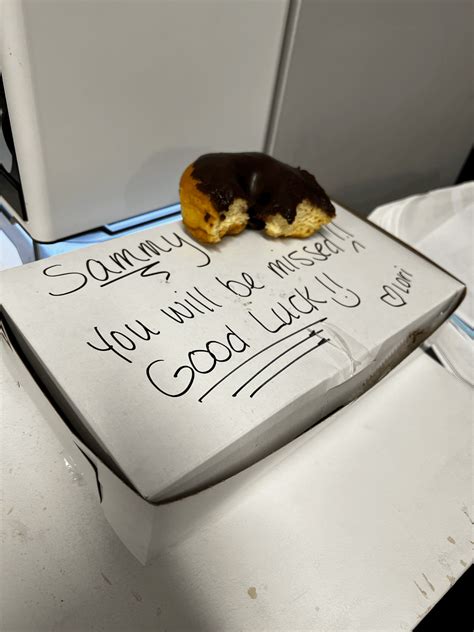 Sammy
You will be missed!!
Good Luck!!
♡Lori